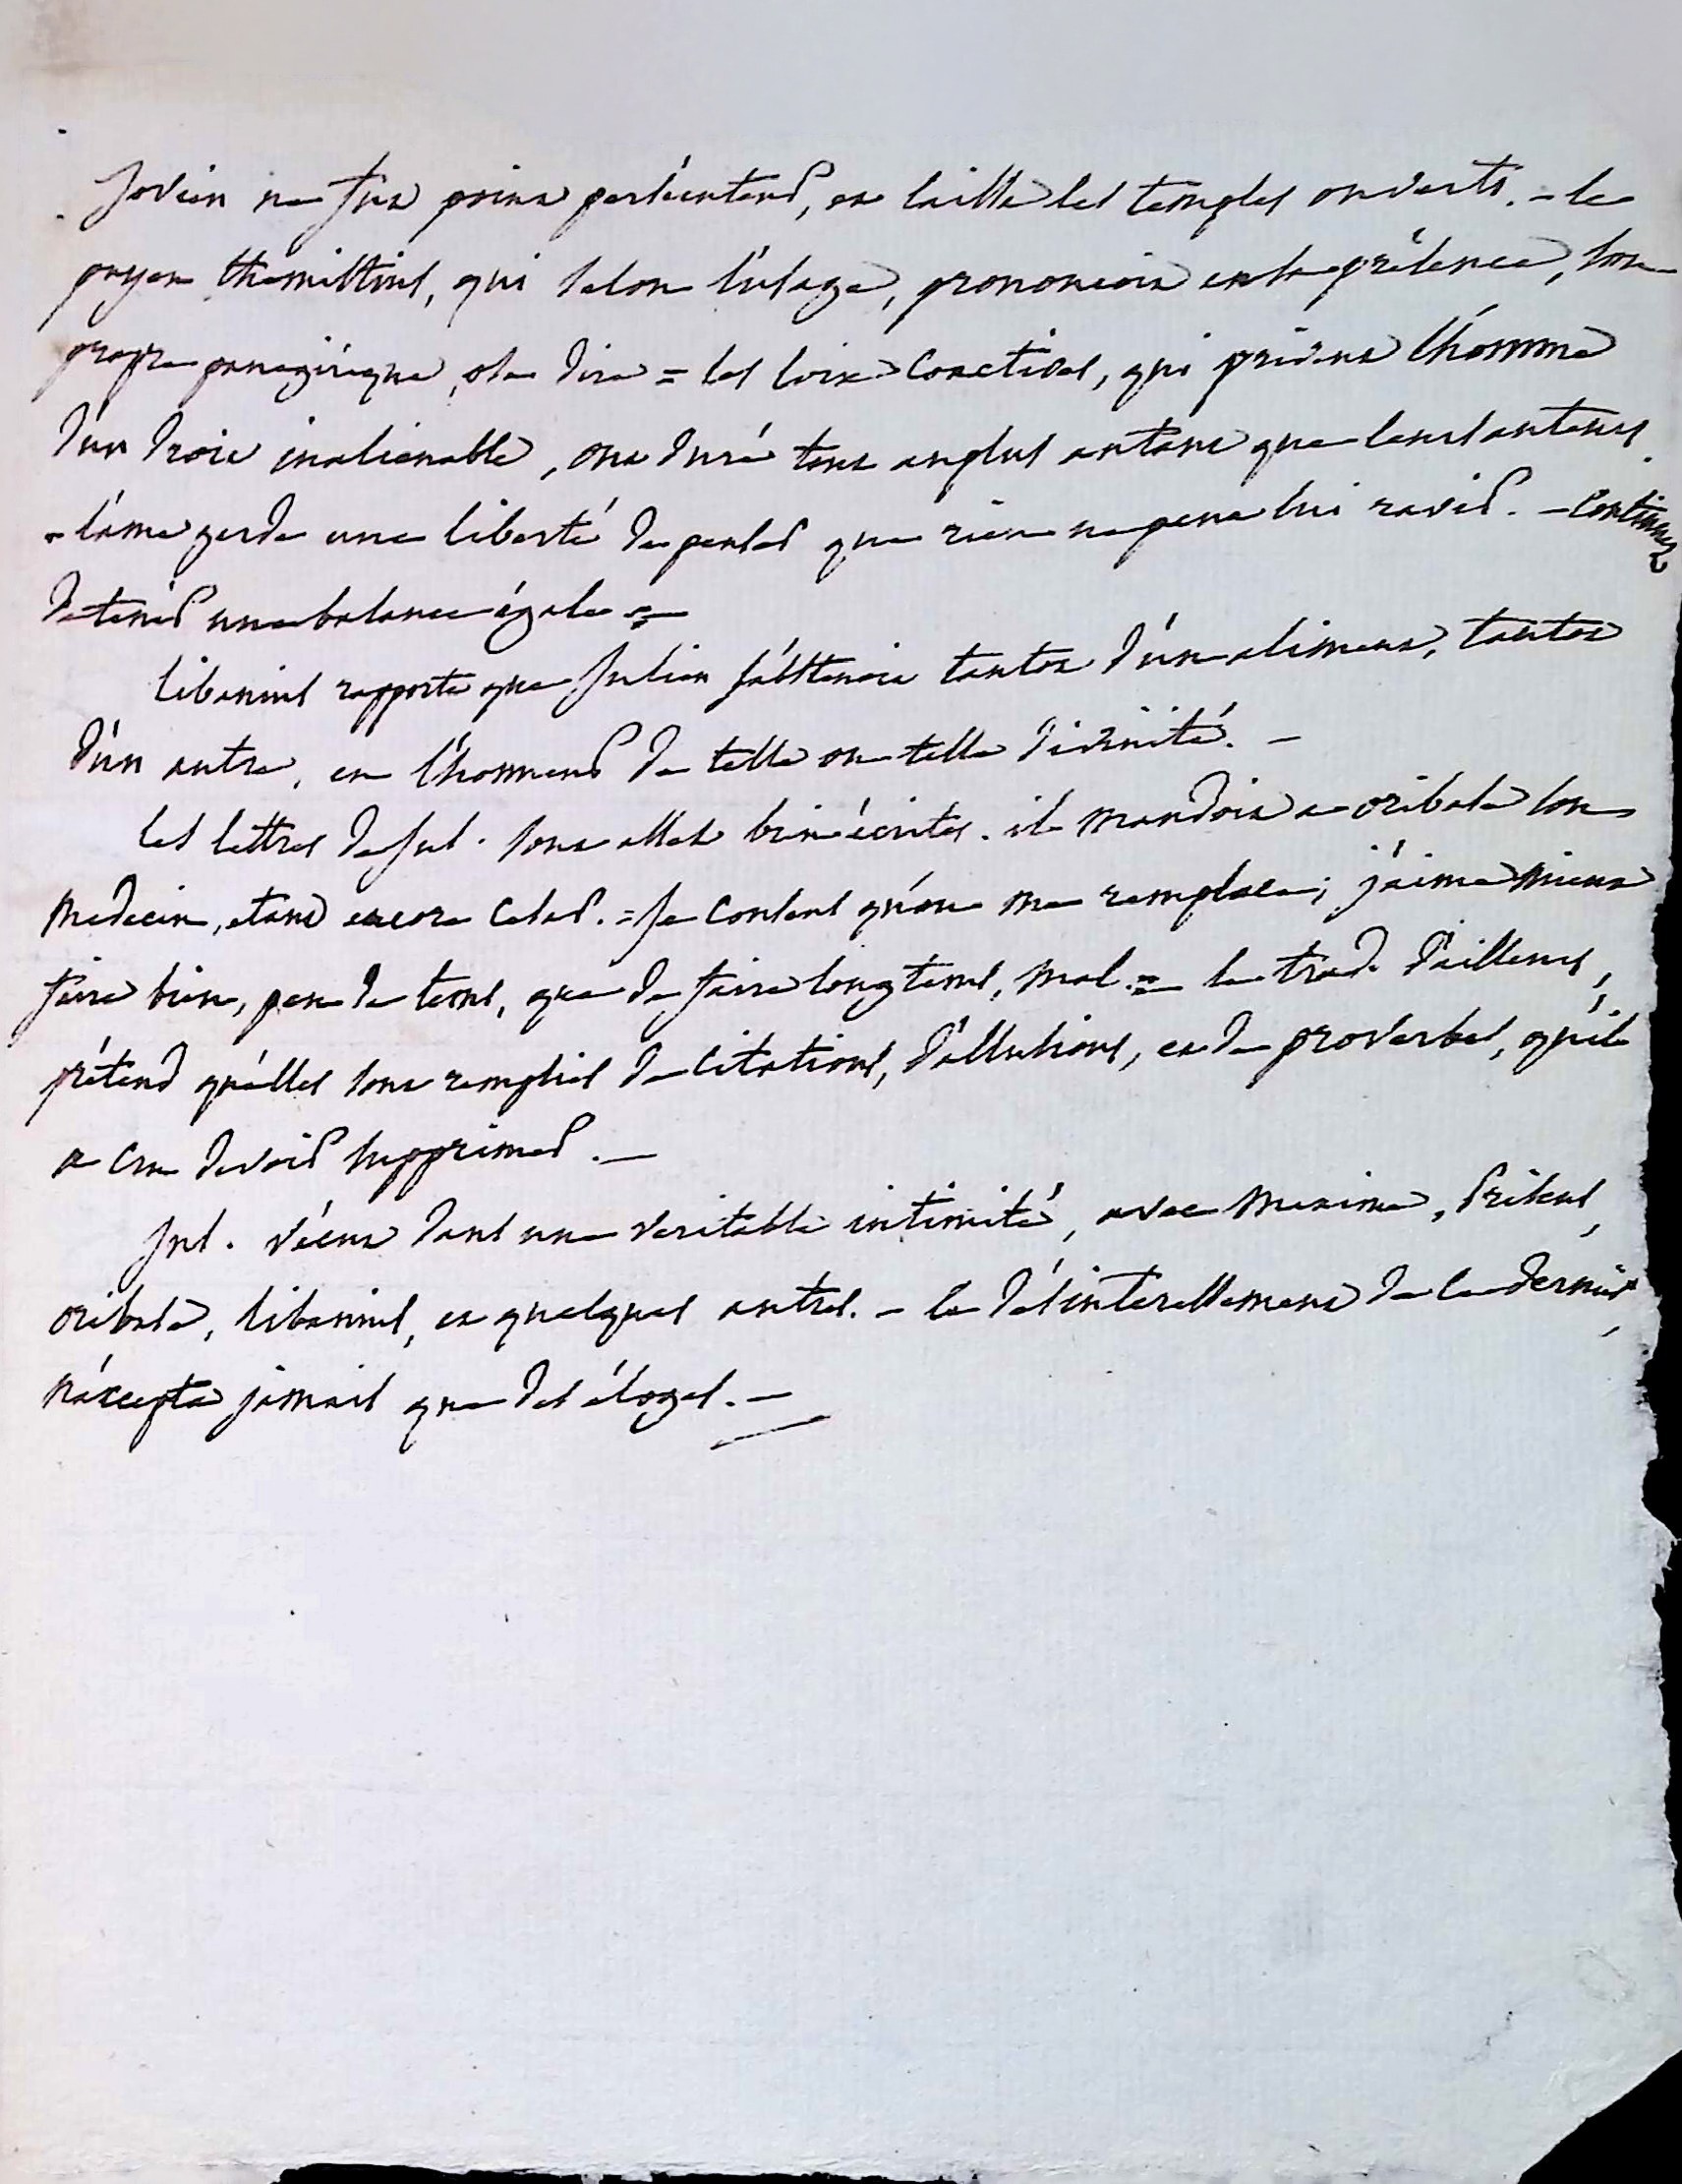 Jovien ne fut point persécuteur, et laissa les temples ouverts. – le
payen themistius, qui selon l'usage, prononcoit en sa présence, son
propre panegirique, osa dire = les loix coactives, qui privent l'homme
d'un droit inalienable, ont duré tout au plus autant que leurs auteurs.
– l'ame garde une liberté de penser que rien ne peut lui ravir. – Continuez
de tenir une balance égale =
libanius rapporte que Julien s'abstenoit tantot d'un aliment, tantot
d'un autre, en l'honneur de telle ou telle divinité. –
les lettres de Jul. sont assez bien écrites. il mandoit a oribase son
medecin, etant encore Cesar. = Je consens qu'on me remplace ; j'aime mieux
faire bien, peu de tems, que de faire longtems, mal. = le trad. d'ailleurs,
prétend qu'elles sont remplies de citations, d'allusions, et de proverbes, qu'il
a cru devoir supprimer. –
Jul. vécut dans une veritable intimité, avec Maxime, Priscus,
oribase, libanius, et quelques autres. – le désinteressement de ce dernier,
n'accepta jamais que des éloges. –